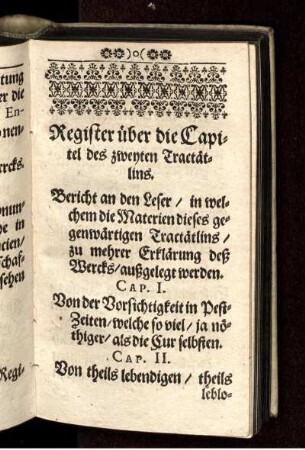 )o(
Register über die Capi-
tel des zweyten Tractät-
lins.
Bericht an den Leser / in wel-
chem die Materien dieses ge-
genwärtigen Tractätlins /
zu mehrer Erklärung deß
Wercks / außgelegt werden.
CAP. I.
Von der Vorsichtigkeit in Pest-
Zeiten / welche so viel / ja nö-
thiger / als die Cur selbsten.
CAP. II.
Von theils lebendigen / theils
leblo-